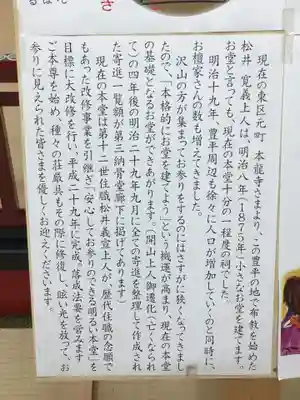 現在の東区元町 本龍寺さまより、この豊平の地で布教を始めた
松井 寛義上人は明治八年(1875年)小さなお堂を建てます。
お堂と言っても、現在の本堂の十分の一程度の祠でした。
明治十九年、豊平周辺も徐々に人口が増加していくのと同時に、
お檀家さんの数も増えてきました。
沢山の方が集まってお参りをするのにはさすがに狭くなってきまし
たので、「本格的にお堂を建てよう」という機運が高まり、現在の本堂
の基礎となるお堂ができあがります(開山上人御遷化(亡くなられ
て)の四年後の明治二十九年九月に全ての寄進を整理して作成され
た寄進一覧額が第三納骨堂廊下に掲げてあります)
現在の本堂は第十二世住職松井義宣上人が、歴代住職の念願で
もあった改修事業を引継ぎ「安心してお参りのできる明るい本堂」を
目標に大改修を行い、平成二十九年に完成、落成法要を営みます
ご本尊を始め、種々の荘厳具もその際に修復し、眩い光を放って、お
参りに見えられた皆さまを優しくお迎えくださいます。